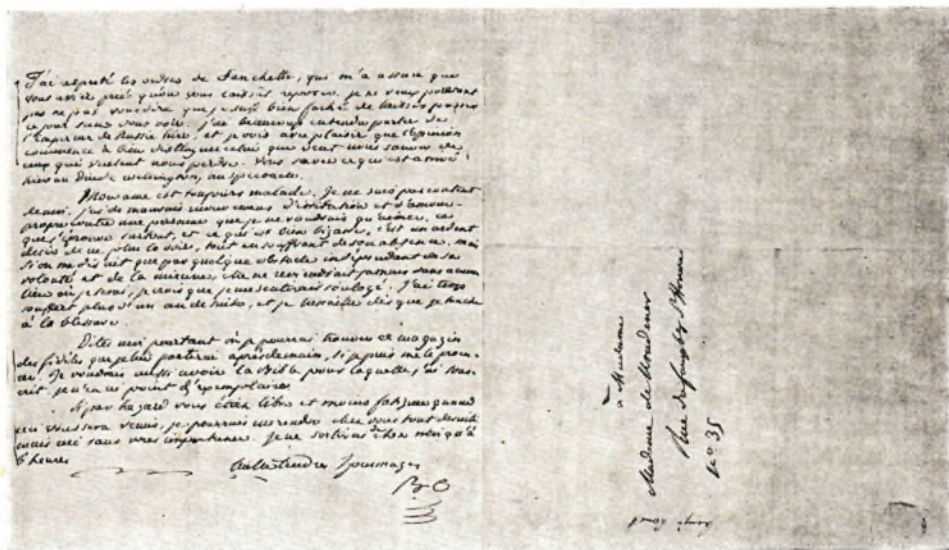 J'ai respecté les ordres de Fanchette, qui m'a assuré que
vous aviez prié qu'on vous laissât reposer. je ne veux pourtant
pas ne pas vous dire que je suis bien faché de laisser passer
ce jour sans vous voir. j'ai beaucoup entendu parler de
l'Empereur de Russie hier, et je vois avec plaisir que l'opinion
commence à bien distinguer celui qui veut nous sauver de
ceux qui veulent nous perdre. Vous savez ce qui est arrivé
hier au Duc de Wellington, au spectacle.
Mon ame est toujours malade. Je ne suis pas content
de moi. j'ai de mauvais mouvemens d'irritation et d'amour-
propre contre une personne que je ne voudrais qu'aimer. ce
que j'éprouve surtout, et ce qui est bien bizarre, c'est un ardent
désir de ne plus la voir, tout en souffrant de son absence. mais
si on me disait que par quelque obstacle indépendant de sa
volonté et de la mienne, elle ne reviendrait jamais dans aucun
lieu où je serai, je crois que je me sentirais soulagé. J'ai trop
souffert plus d'un an de suite, et je tressaille dès que je touche
à la blessure.
Dites moi pourtant où je pourrai trouver ce magazin
des fidèles que je lui porterai après demain, si je puis me le procu-
rer. Je voudrais aussi avoir la Bible pour laquelle j'ai sous-
crit. je n'en ai point d'exemplaire.
Si par hazard vous étiez libre et moins fatiguée quand
ceci vous sera remis, je pourrais me rendre chez vous tout de suite
mais ceci sans vous importuner. je ne sortirai de chez moi qu'à
6 heures
Mille tendres hommages
B C
à Madame
Madame de Krudener
Rue du faubg St Honoré
no 35